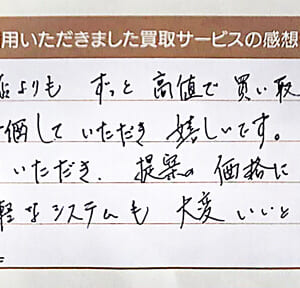 用いただきました買取サービスの感想
店よりも ずっと 高値で 買い取
価していただき 嬉しいです。
いただき、提案の価格に
軽なシステムも 大変 いいと